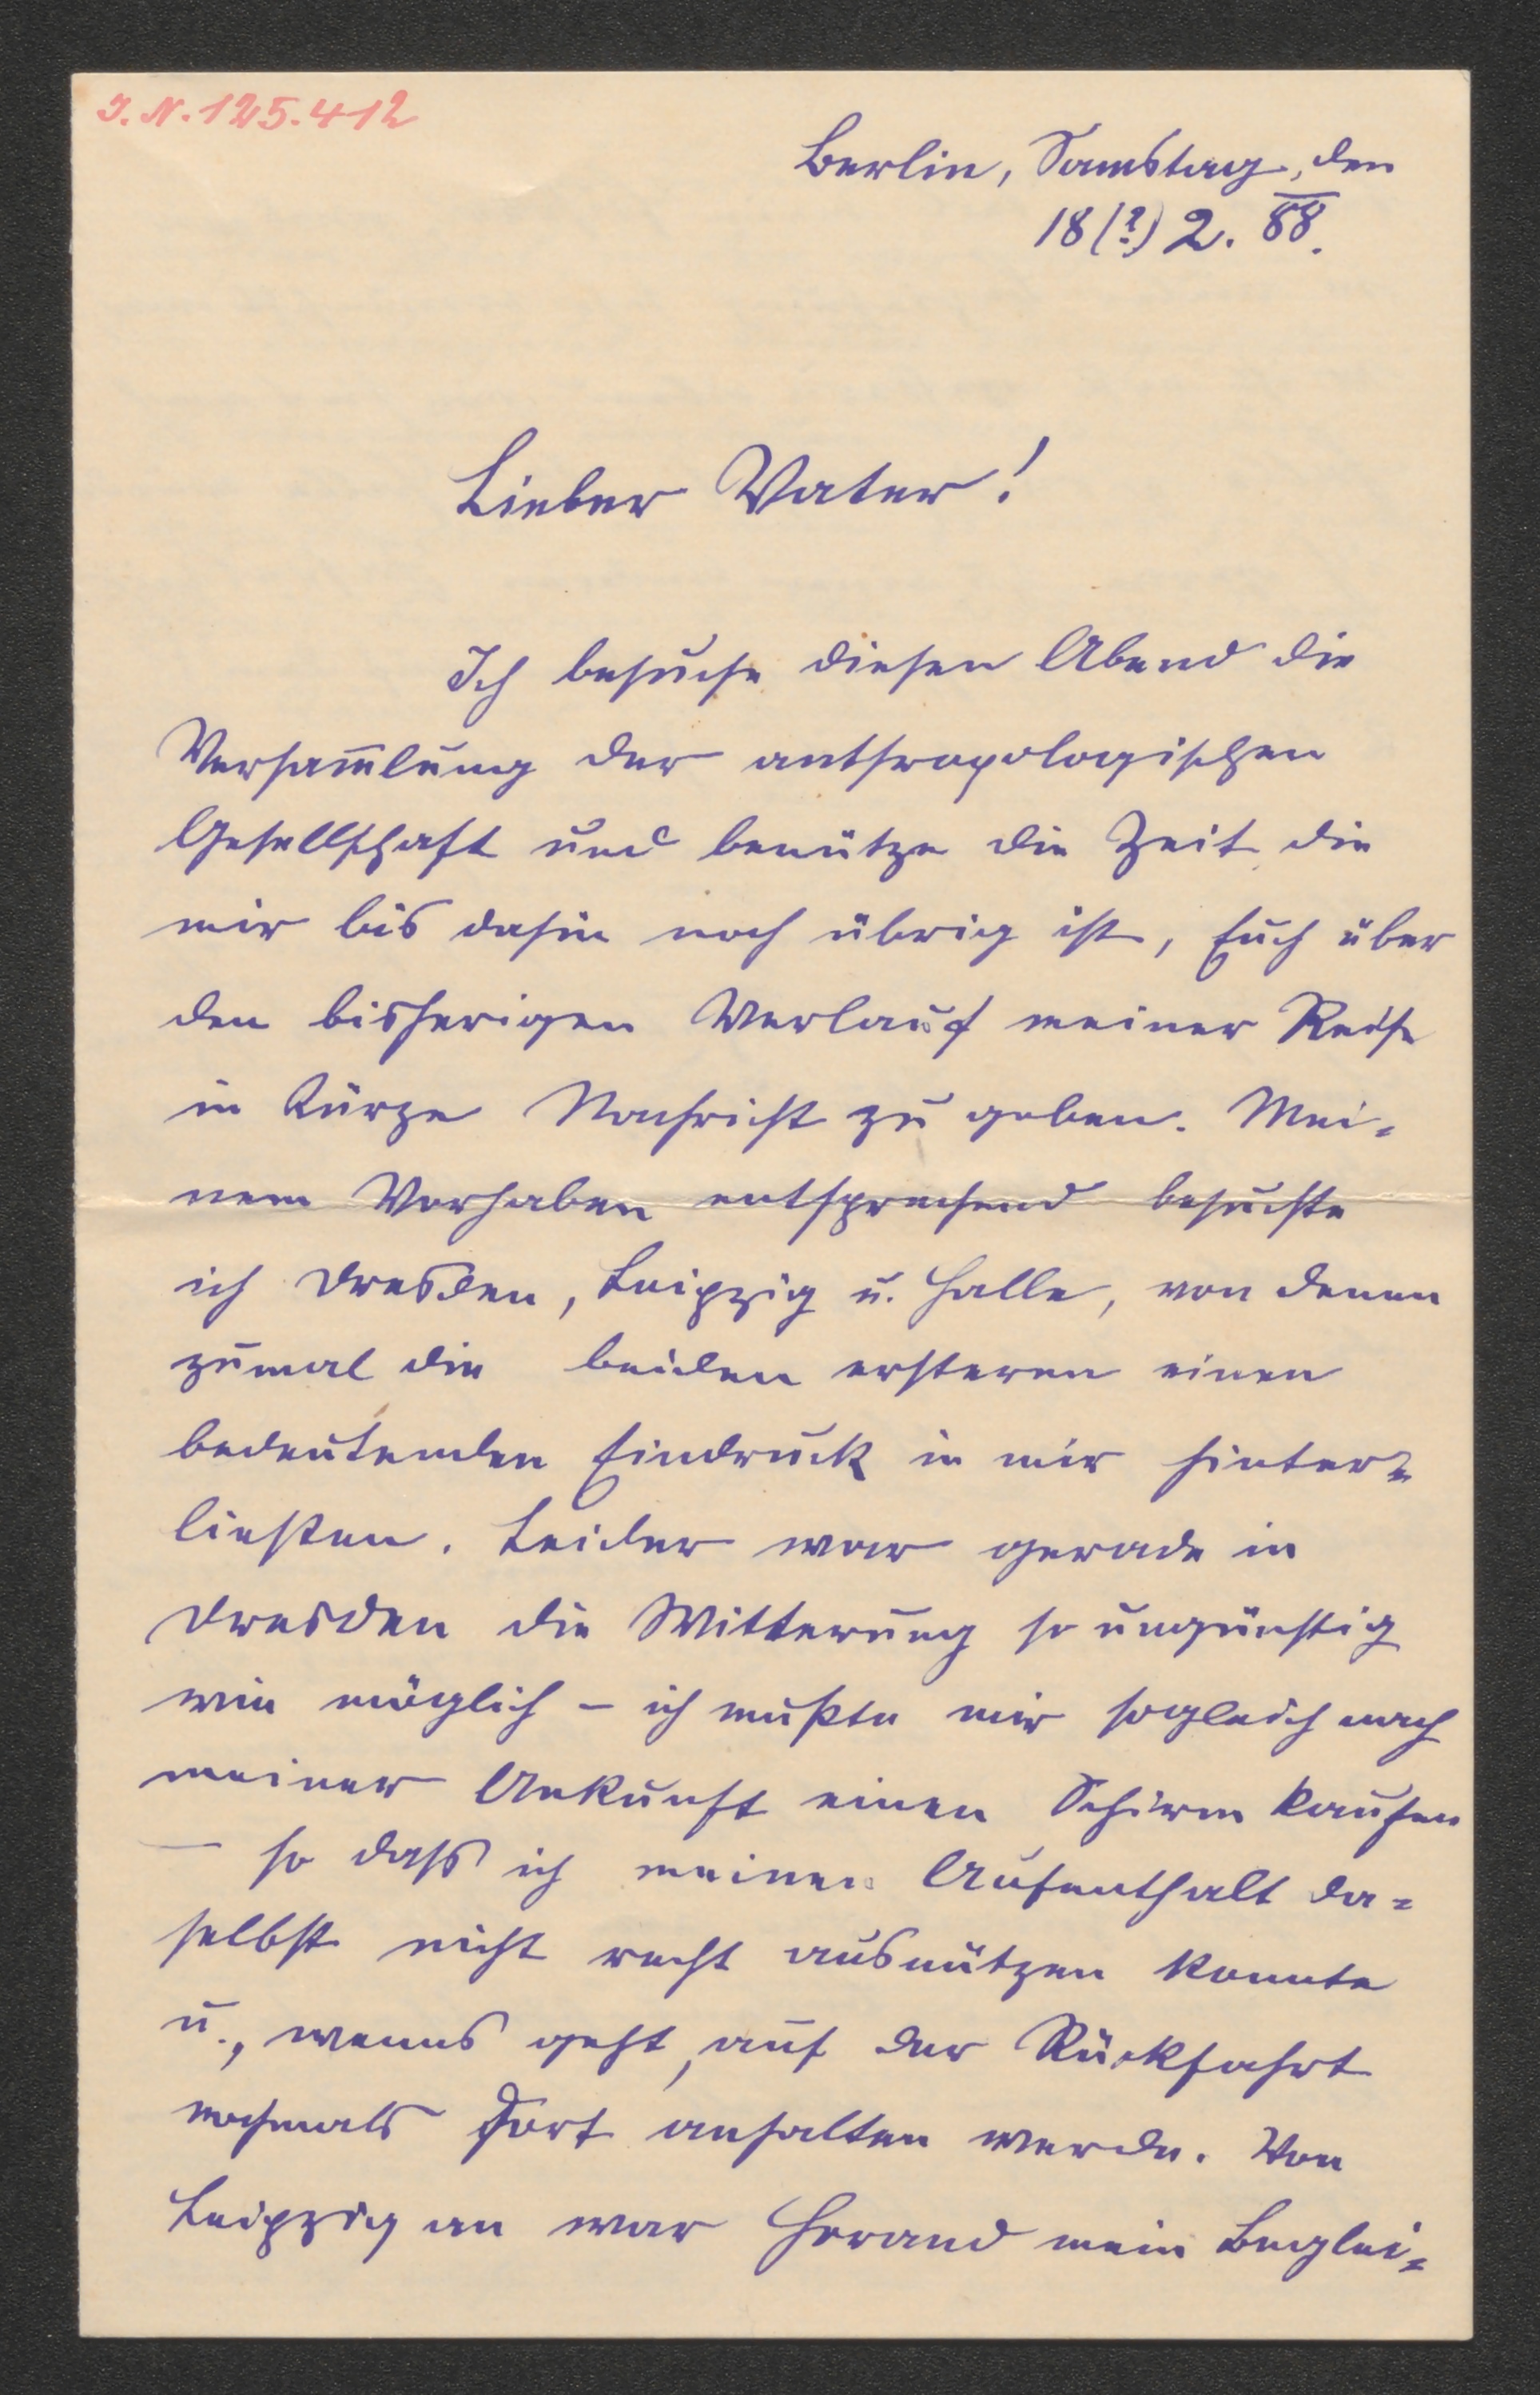 I. N. 125.412
Berlin, Samstag, den
18(?) 2. 88.
Lieber Vater!
Ich besuche diesen Abend die
Versam̄lung der anthropologischen
Gesellschaft und benütze die Zeit, die
mir bis dahin noch übrig ist, Euch über
den bisherigen Verlauf meiner Reise
in Kürze Nachricht zu geben. Mei-
nem Vorhaben entsprechend besuchte
ich Dresden, Leipzig u. Halle, von denen
zumal die beiden ersteren einen
bedeutenden Eindruck in mir hinter-
ließen. Leider war gerade in
Dresden die Witterung so ungünstig
wie möglich – ich mußte mir sogleich nach
meiner Ankunft einen Schirm kaufen
– so dass ich meinen Aufenthalt da-
selbst nicht recht ausnützen konnte
u., wenns geht, auf der Rückfahrt
nochmals dort anhalten werde. Von
Leipzig an war Horand mein Beglei-